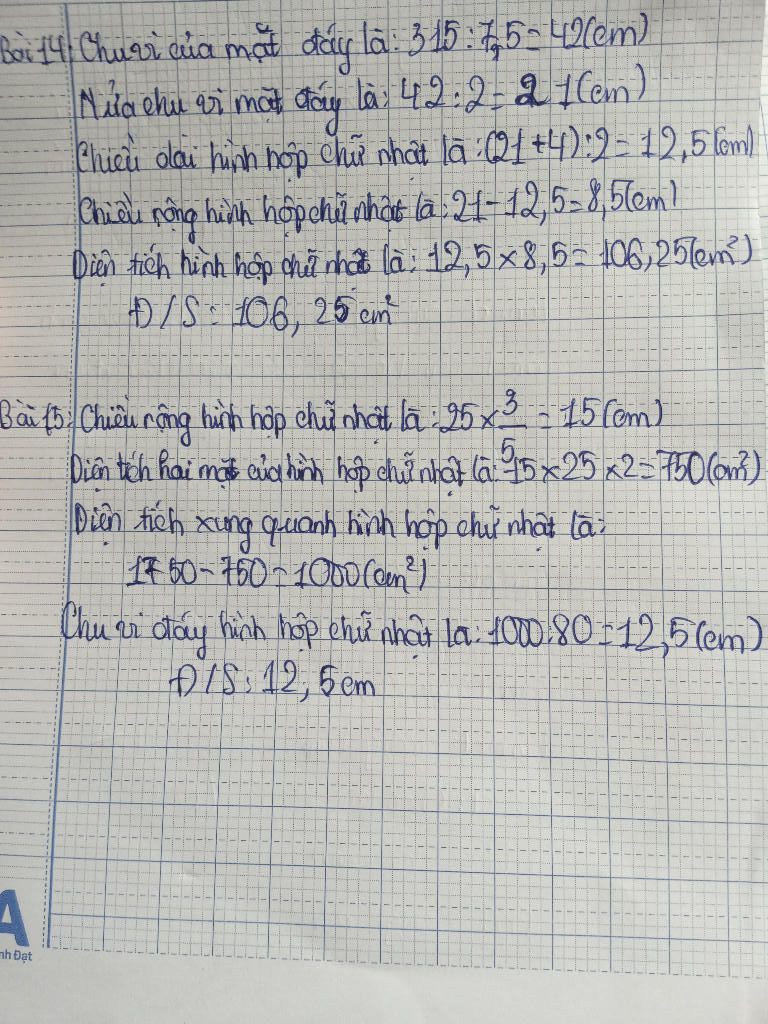 Bài 14: Chu vi của mặt đáy là: 315 : 7,5 = 42(cm)
Nửa chu vi mặt đáy là: 42 : 2 = 21(cm)
Chiều dài hình hộp chữ nhật là: (21+4) : 2 = 12,5(cm)
Chiều rộng hình hộp chữ nhật là: 21 - 12,5 = 8,5(cm)
Diện tích hình hộp chữ nhật là: 12,5 × 8,5 = 106,25(cm²)
Đ/S: 106,25 cm²
Bài 15: Chiều rộng hình hộp chữ nhật là: 25 × 3/5 = 15(cm)
Diện tích hai mặt của hình hộp chữ nhật là: 15 × 25 × 2 = 750(cm²)
Diện tích xung quanh hình hộp chữ nhật là:
1750 - 750 = 1000(cm²)
Chu vi đáy hình hộp chữ nhật là: 1000 : 80 = 12,5(cm)
Đ/S: 12,5 cm
A
nh Đạt